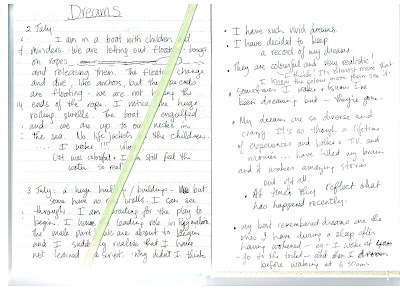 Dreams
2 July:
I am in a boat with children and
f minders. We are letting out floats
on ropes
and releasing them. The floats change
and dive, like anchors, but the ropes ends
are floating - we are not holding the
ends of the rope. I notice the huge
rolling swells. The boat engulfed
and we are up to our necks in
the sea. No life jackets on the children.
.... I wake !!!
(It was colorful. I can still feel the
water. So real
3 July: a huge building / buildings - but
some have no walls. I can see
through. I am waiting for the play to
begin. I have a leading role
the male part. We are about to begin
and I suddenly realise that I have
not learned script. Why didn't I think
• I have such vivid dreams.
• I have decided to keep
a record of my dreams.
• They are colourful and very realistic!
I think. It's almost more that
I know the colour more than see it.
• Sometimes I wake & know I've
been dreaming but - they're gone.
• My dreams are so diverse and
crazy. It's as though a lifetime
of experiences and books & T.V. and
movies... have filled my brain
and it makes annoying stories
out of all.
• At times they reflect what
has happened recently.
• My best remembered dreams are the
ones I have during a sleep after
having wakened - eg. I wake at 4am
- go to the toilet - and then I dream
before waking at 6.30am.